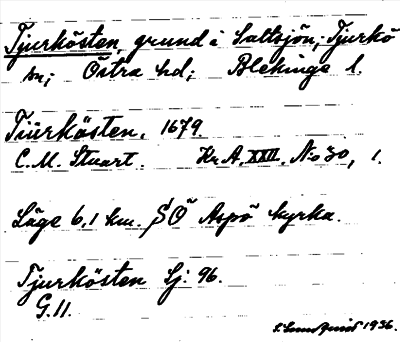 Tjurkösten, grund i Saltsjön, Tjurkö
sn; Östra hd; Blekinge l.
Tiurkösten. 1679.
C. M. Stuart. Kr. A. XXII. N:o 30, 1.
Läge 6,1 km. SO Aspö kyrka.
Tjurkösten Sj: 96.
G. 11.
S. Lundquist 1936.